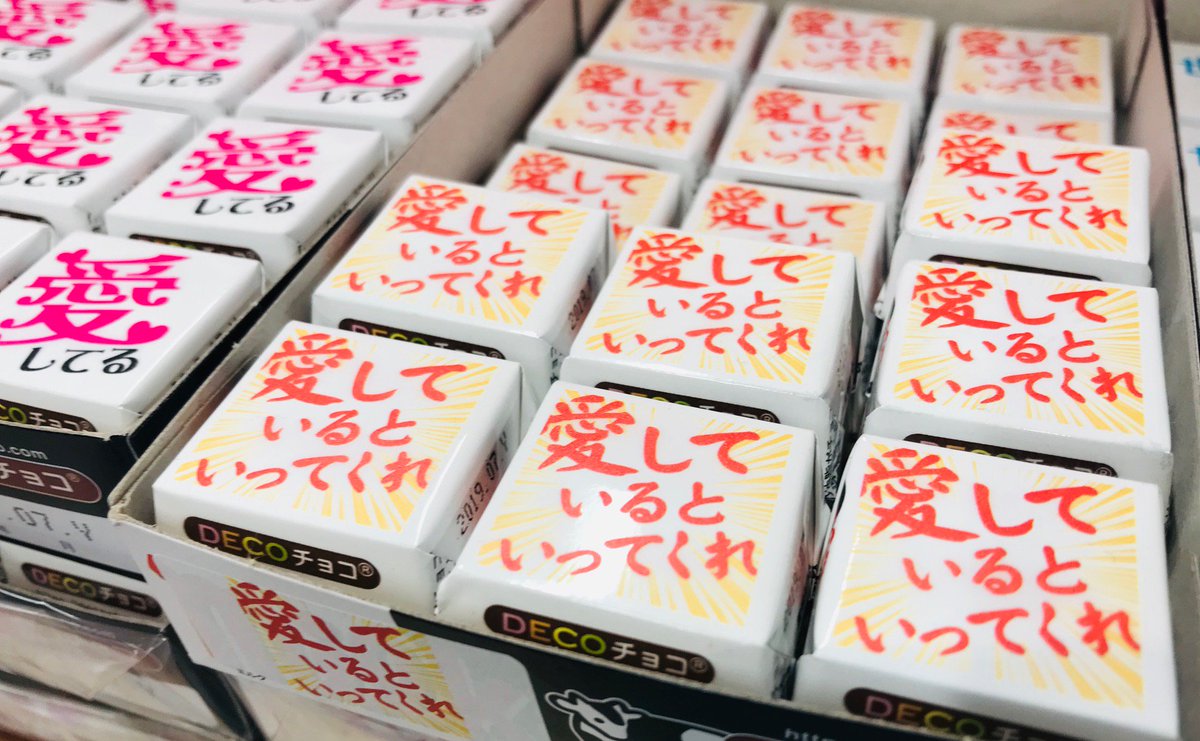 愛
してる
愛して
いると
いってくれ
DECOチョコ®
愛
してる
愛
してる
愛
してる
愛
してる
愛
してる
DECOチョコ
.com
チョコ®
DECOチョコ
愛して
いると
いってくれ
愛して
いると
いってくれ
愛して
いると
いってくれ
愛して
いると
いってくれ
愛して
いると
いってくれ
愛して
いると
いってくれ
愛して
いると
愛して
いると
愛して
いると
いってくれ
愛して
いると
いってくれ
愛して
いると
いってくれ
愛して
いると
いってくれ
DECOチョコ®
2019.07
愛して
いると
いってくれ
DECOチョコ®
愛して
いると
いってくれ
DECO
愛して
いると
いってくれ
http